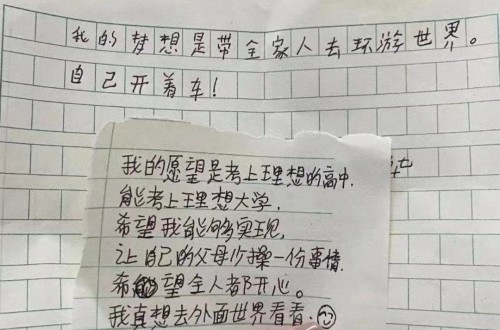 我的梦想是带全家人去环游世界。
自己开着车!
我的愿望是考上理想的高中.
能考上理想大学.
希望我能够实现
让自己的父母少操一份事情.
希望全人都开心。
我真想去外面世界看看.